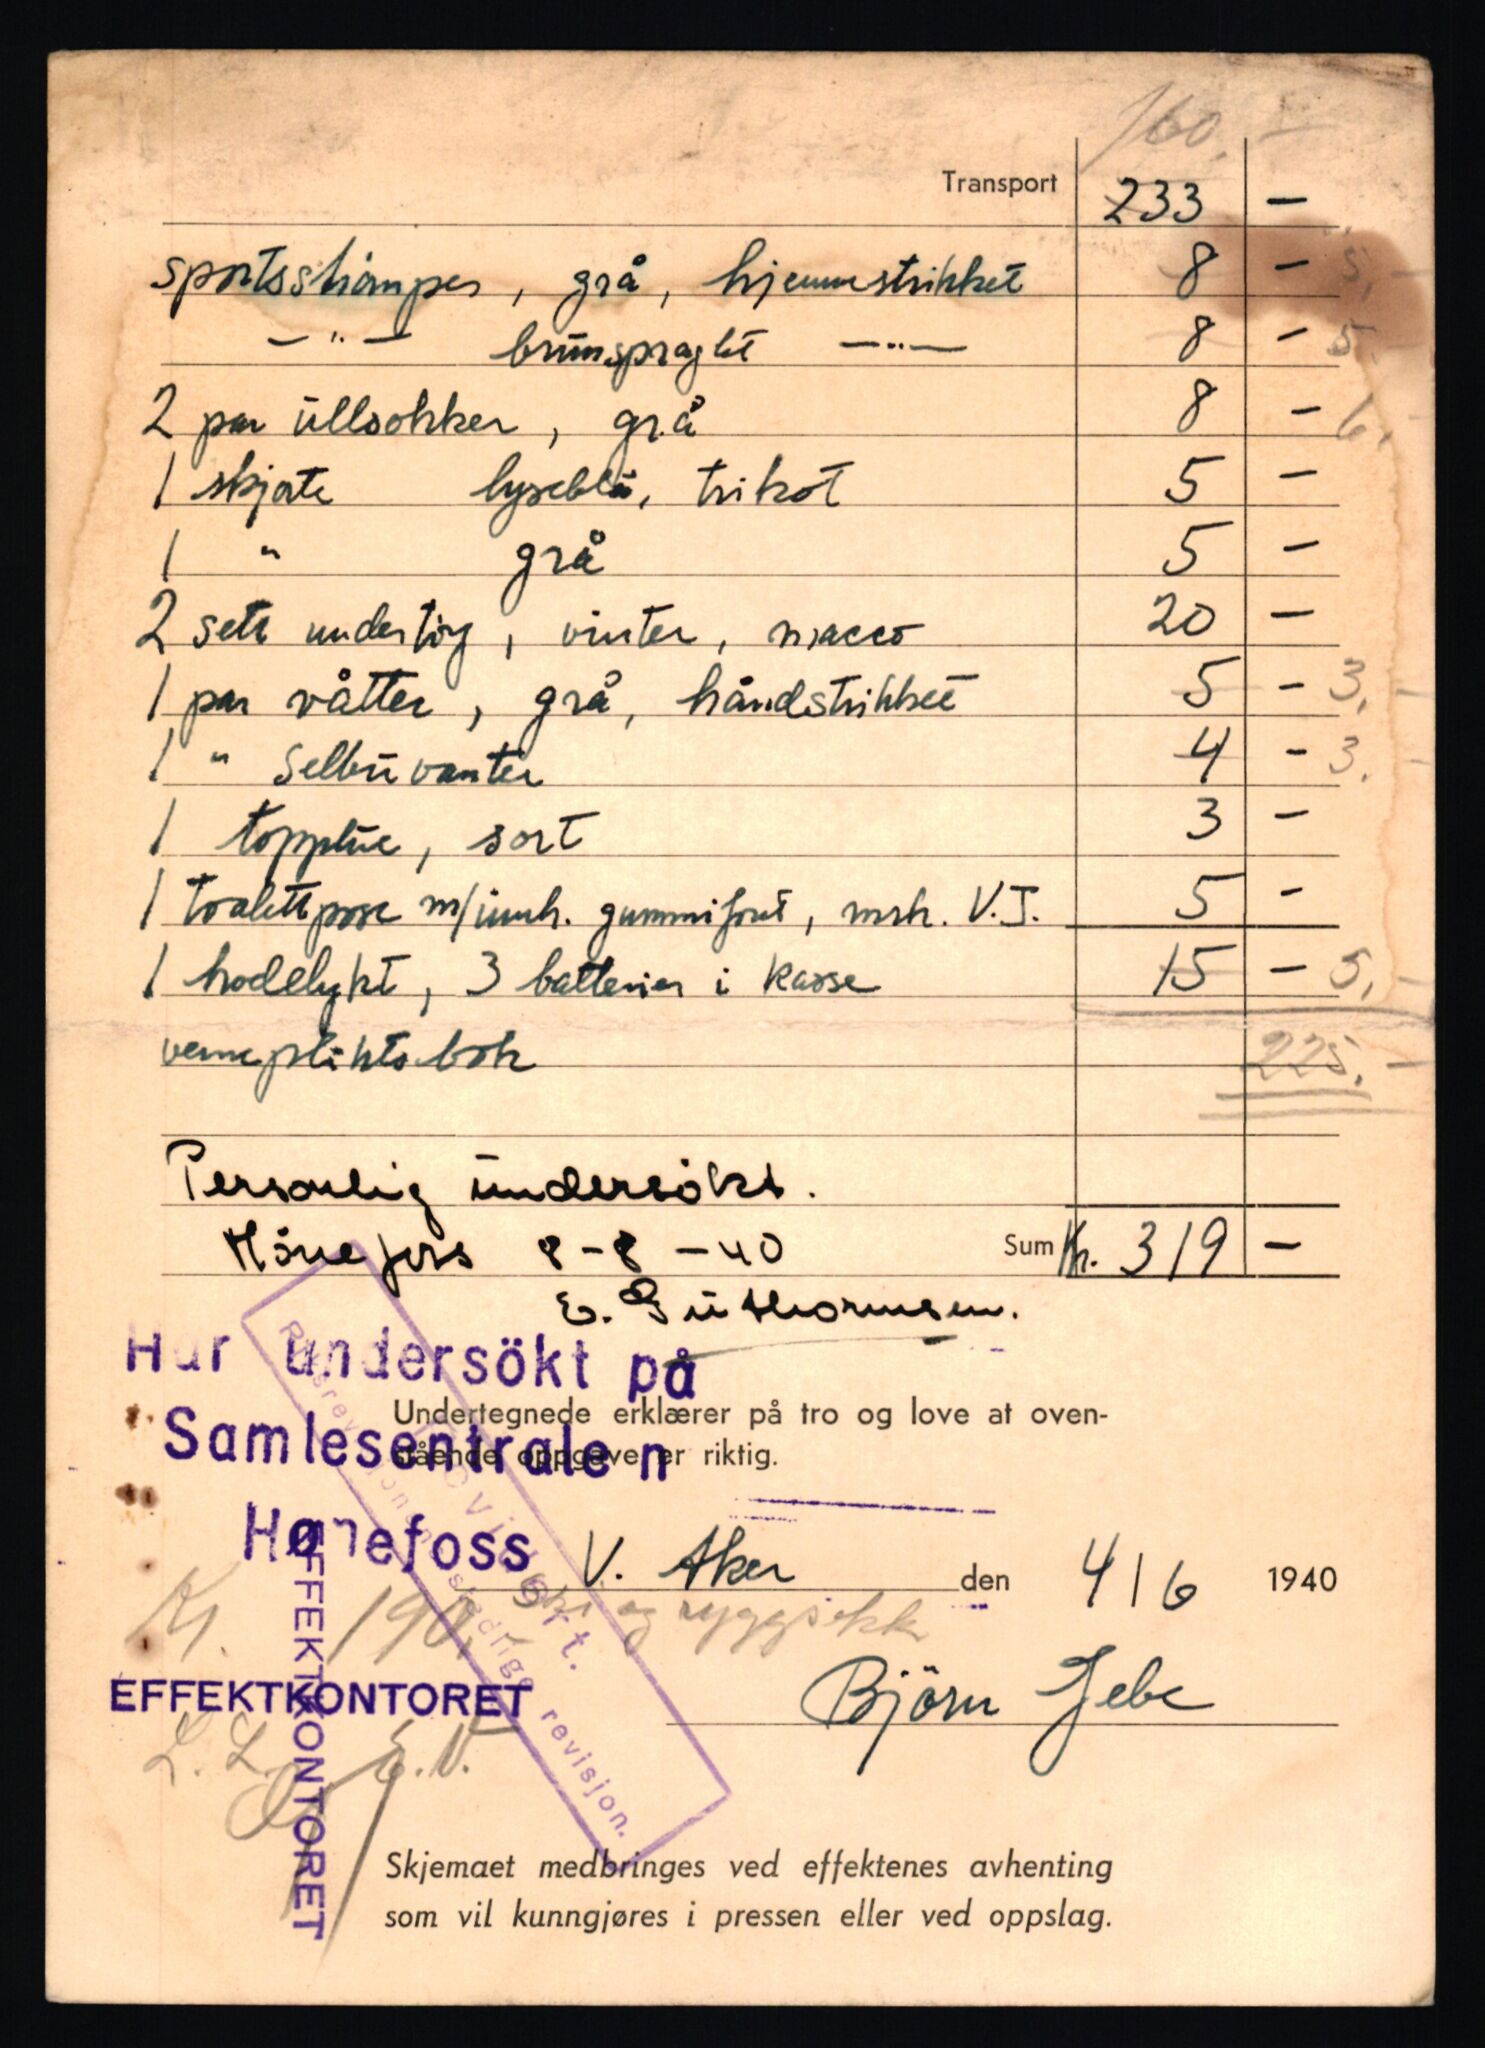 160,-
Transport 233 -
sportsströmper, grå, hjemmestrikket 8 - 5,-
-"- brunspraglet -"- 8 - 5,-
2 par ullsokker, grå 8 - 6,-
1 skjorte lyseblå, trikot 5 -
1 " grå 5 -
2 sett undertöy, vinter, macco 20 -
1 par våtter, grå, håndstrikket 5 - 3,-
1 " Selbuvanter 4 - 3.-
1 topplue, sort 3 -
1 toalettpose m/innh. gummiforet, mrk. V.J. 5 -
1 hodelykt, 3 batterier i kasse 15 - 5,-
vernepliktsbok 225,-
Personlig undersökt.
Hönefoss 8-8-40 Sum Kr. 319 -
E. Guthormsen.
Har undersökt på
Undertegnede erklærer på tro og love at oven-
Samlesentralen
stående oppgave er riktig.
Hønefoss
Revidert.
Riksrevisjonen stedlige revisjon.
V. Aker den 4/6 1940
Kr. 190,- ski og ryggsekk
Björn Jebe
EFFEKTKONTORET
EFFEKTKONTORET
L.L. E.N.
Skjemaet medbringes ved effektenes avhenting
som vil kunngjøres i pressen eller ved oppslag.